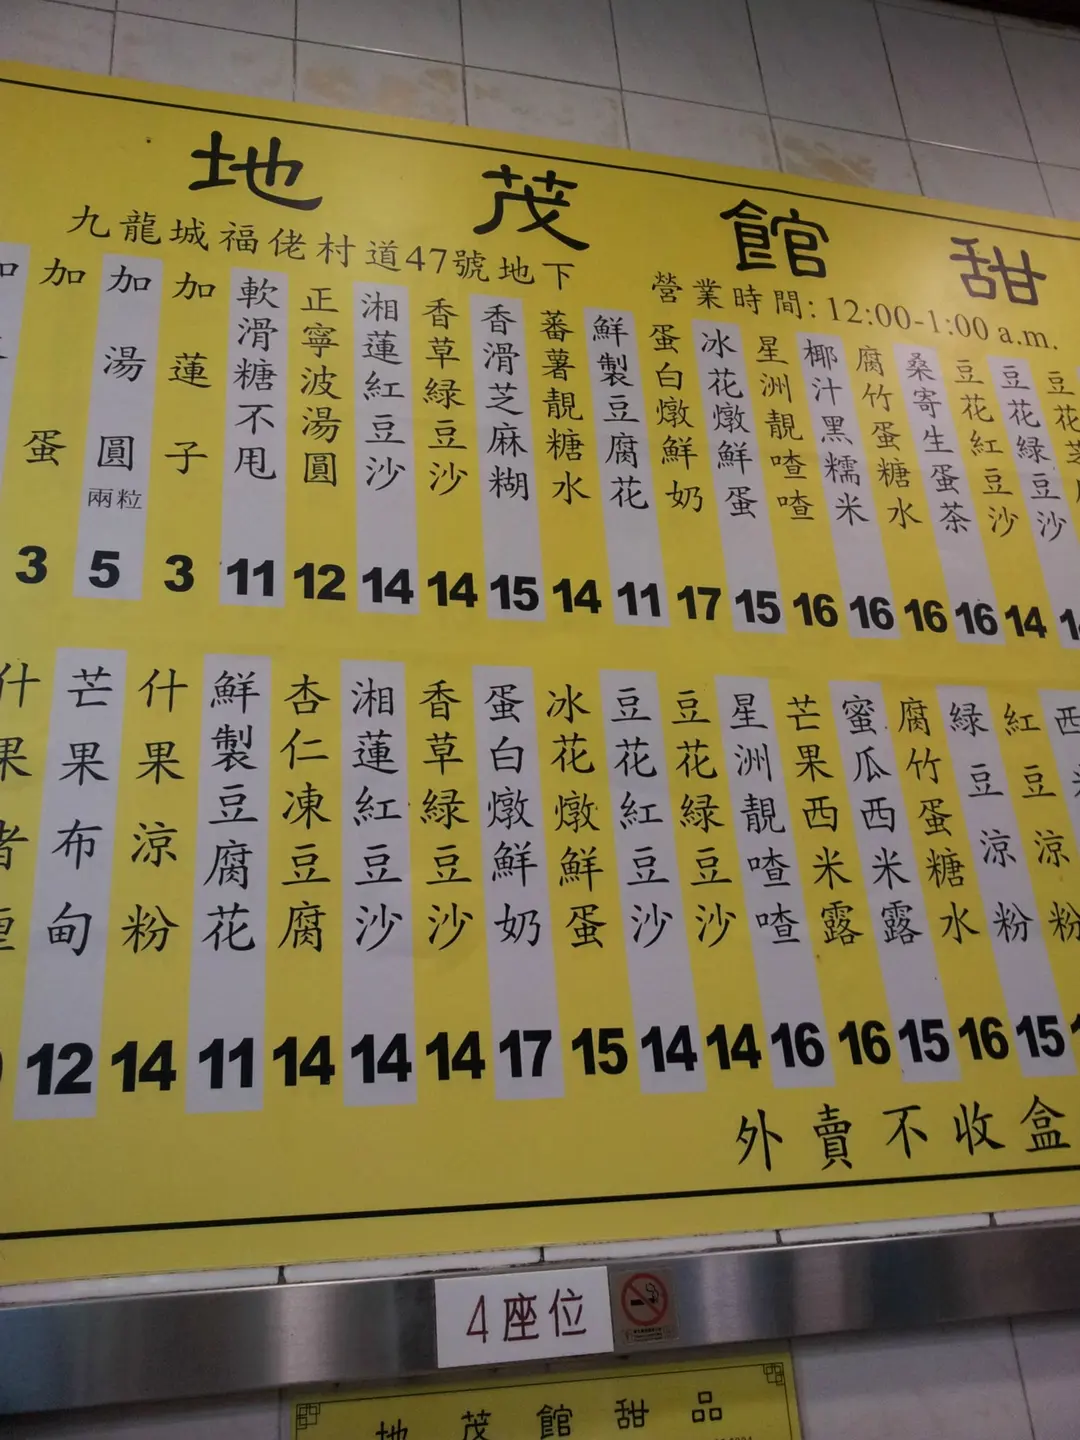 地茂館甜
九龍城福佬村道47號地下
營業時間: 12:00-1:00 a.m.
加
加蛋 3
加湯圓 兩粒 5
加蓮子 3
軟滑糖不甩 11
正寧波湯圓 12
湘蓮紅豆沙 14
香草綠豆沙 14
香滑芝麻糊 15
蕃薯靚糖水 14
鮮製豆腐花 11
蛋白燉鮮奶 17
冰花燉鮮蛋 15
星洲靚喳喳 16
椰汁黑糯米 16
腐竹蛋糖水 16
桑寄生蛋茶 16
豆花紅豆沙 14
豆花綠豆沙
豆花芝
什果
芒果布甸 12
什果涼粉 14
鮮製豆腐花 11
杏仁凍豆腐 14
湘蓮紅豆沙 14
香草綠豆沙 14
蛋白燉鮮奶 17
冰花燉鮮蛋 15
豆花紅豆沙 14
豆花綠豆沙 14
星洲靚喳喳 16
芒果西米露 16
蜜瓜西米露 15
腐竹蛋糖水 16
綠豆涼粉 15
紅豆涼粉
西
外賣不收盒
4座位
地茂館甜品